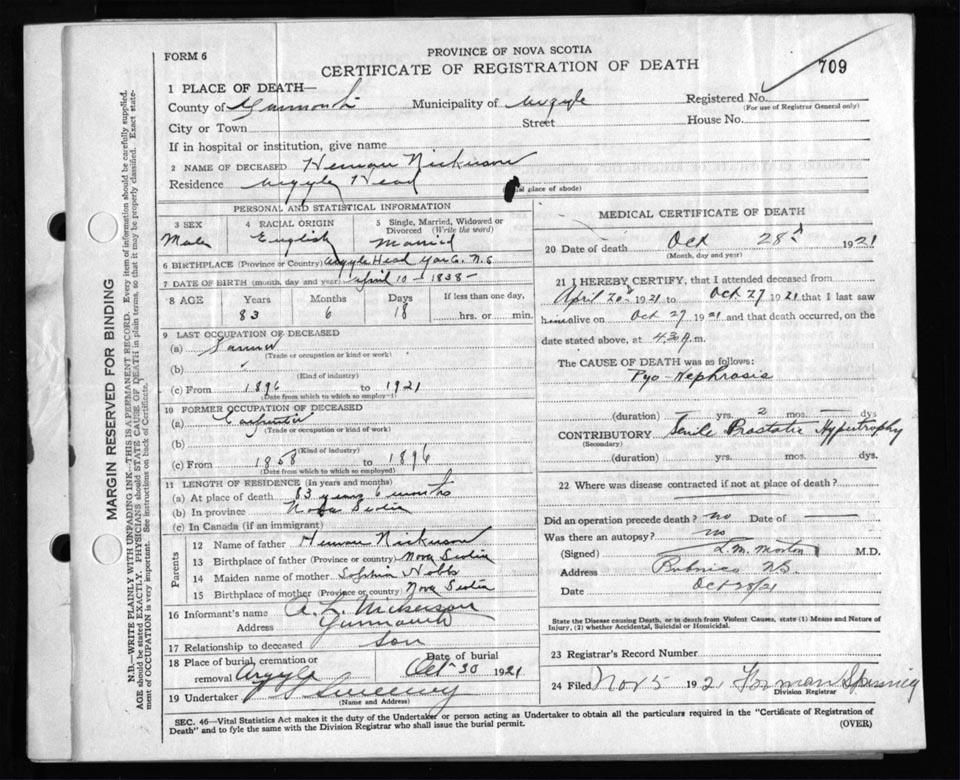 PROVINCE OF NOVA SCOTIA
FORM 6
CERTIFICATE OF REGISTRATION OF DEATH
709
1 PLACE OF DEATH—
County of Yarmouth Municipality of Argyle Registered No.
(For use of Registrar General only)
City or Town Street House No.
If in hospital or institution, give name
2 NAME OF DECEASED Heman Nickerson
Residence Argyle Head
al place of abode)
PERSONAL AND STATISTICAL INFORMATION
3 SEX Male
4 RACIAL ORIGIN English
5 Single, Married, Widowed or Divorced (Write the word) Married
6 BIRTHPLACE (Province or Country) Argyle Head Yar Co. N.S
7 DATE OF BIRTH (month, day and year) April 10 - 1838 -
8 AGE Years Months Days If less than one day,
83 6 18 hrs. or min.
9 LAST OCCUPATION OF DECEASED
(a) Farmer
(Trade or occupation or kind or work)
(b)
(Kind of industry)
(c) From 1896 to 1921
(Date from which to which so employ
10 FORMER OCCUPATION OF DECEASED
(a) Carpenter
(Trade or occupation or kind of work)
(b)
(Kind of industry)
(c) From 1858 to 1896
(Date from which to which so employed)
11 LENGTH OF RESIDENCE (In years and months)
(a) At place of death 83 years 6 months
(b) In province Nova Scotia
(c) In Canada (if an immigrant)
Parents
12 Name of father Heman Nickerson
13 Birthplace of father (Province or country) Nova Scotia
14 Maiden name of mother Sophia Hobbs
15 Birthplace of mother (Province or country) Nova Scotia
16 Informant's name A. L. Nickerson
Address Yarmouth
17 Relationship to deceased son
18 Place of burial, cremation or removal Argyle
Date of burial Oct 30 1921
19 Undertaker Sweeney
(Name and Address)
MEDICAL CERTIFICATE OF DEATH
20 Date of death Oct 28th 1921
(Month, day and year)
21 I HEREBY CERTIFY, that I attended deceased from
April 20th 1921 to Oct 27 1921 that I last saw
him alive on Oct 27 1921 and that death occurred, on the
date stated above, at 4.30 A.m.
The CAUSE OF DEATH was as follows:
Pyo-Nephrosis
(duration) yrs. 2 mos. — dys
CONTRIBUTORY Senile Prostatic Hypertrophy
(Secondary)
(duration) yrs. mos. dys.
22 Where was disease contracted if not at place of death?
Did an operation precede death? no Date of —
Was there an autopsy? no
(Signed) L. M. Morton M.D.
Address Pubnico N.S.
Date Oct 28/21
State the Disease causing Death, or in death from Violent Causes, state (1) Means and Nature of
Injury, (2) whether Accidental, Suicidal or Homicidal.
23 Registrar's Record Number
24 Filed Nov 5 1921 Forman Spinney
Division Registrar
SEC. 46—Vital Statistics Act makes it the duty of the Undertaker or person acting as Undertaker to obtain all the particulars required in the "Certificate of Registration of
Death" and to fyle the same with the Division Registrar who shall issue the burial permit.
(OVER)
MARGIN RESERVED FOR BINDING
N.B.—WRITE PLAINLY WITH UNFADING INK—THIS IS A PERMANENT RECORD. Every item of information should be carefully supplied.
AGE should be stated EXACTLY. PHYSICIANS should STATE CAUSE OF DEATH in plain terms, so that it may be properly classified. Exact state-
ment of OCCUPATION is very important. See instructions on back of Certificate.